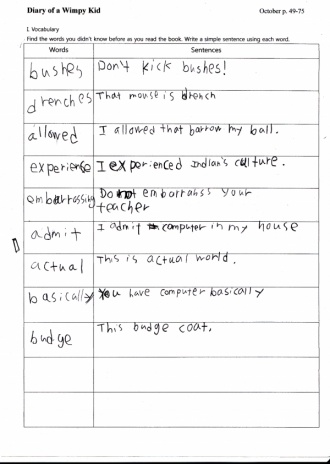 Diary of a Wimpy Kid October p. 49-75
I. Vocabulary
Find the words you didn't know before as you read the book. Write a simple sentence using each word.
Words Sentences
bushes Don't kick bushes!
drenches That mouse is drench
allowed I allowed that barrow my ball.
experience I experienced Indian's culture.
embarrassing Do not embarranss your
teacher
admit I admit computer in my house
actual This is actual world.
basically You have computer basically
budge This budge coat.